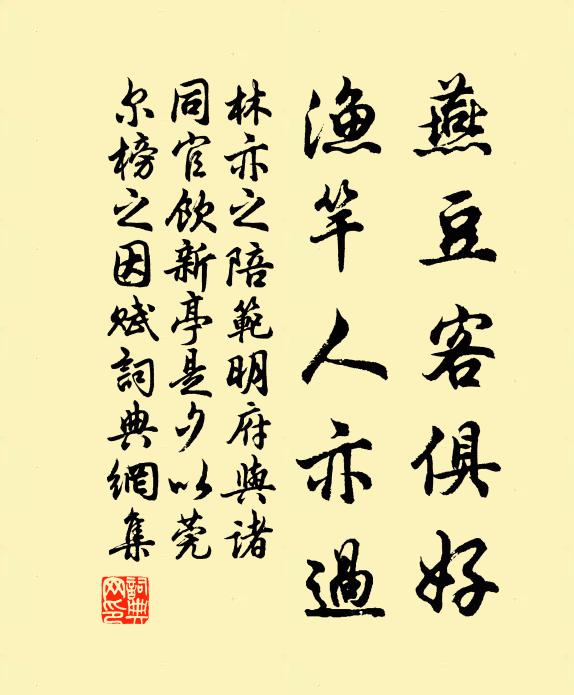 燕豆客俱好
漁竿人亦過
林亦之陪範明府與諸
同官飲新亭是夕以莞
尔榜之因賦詞典網集
詞典网印